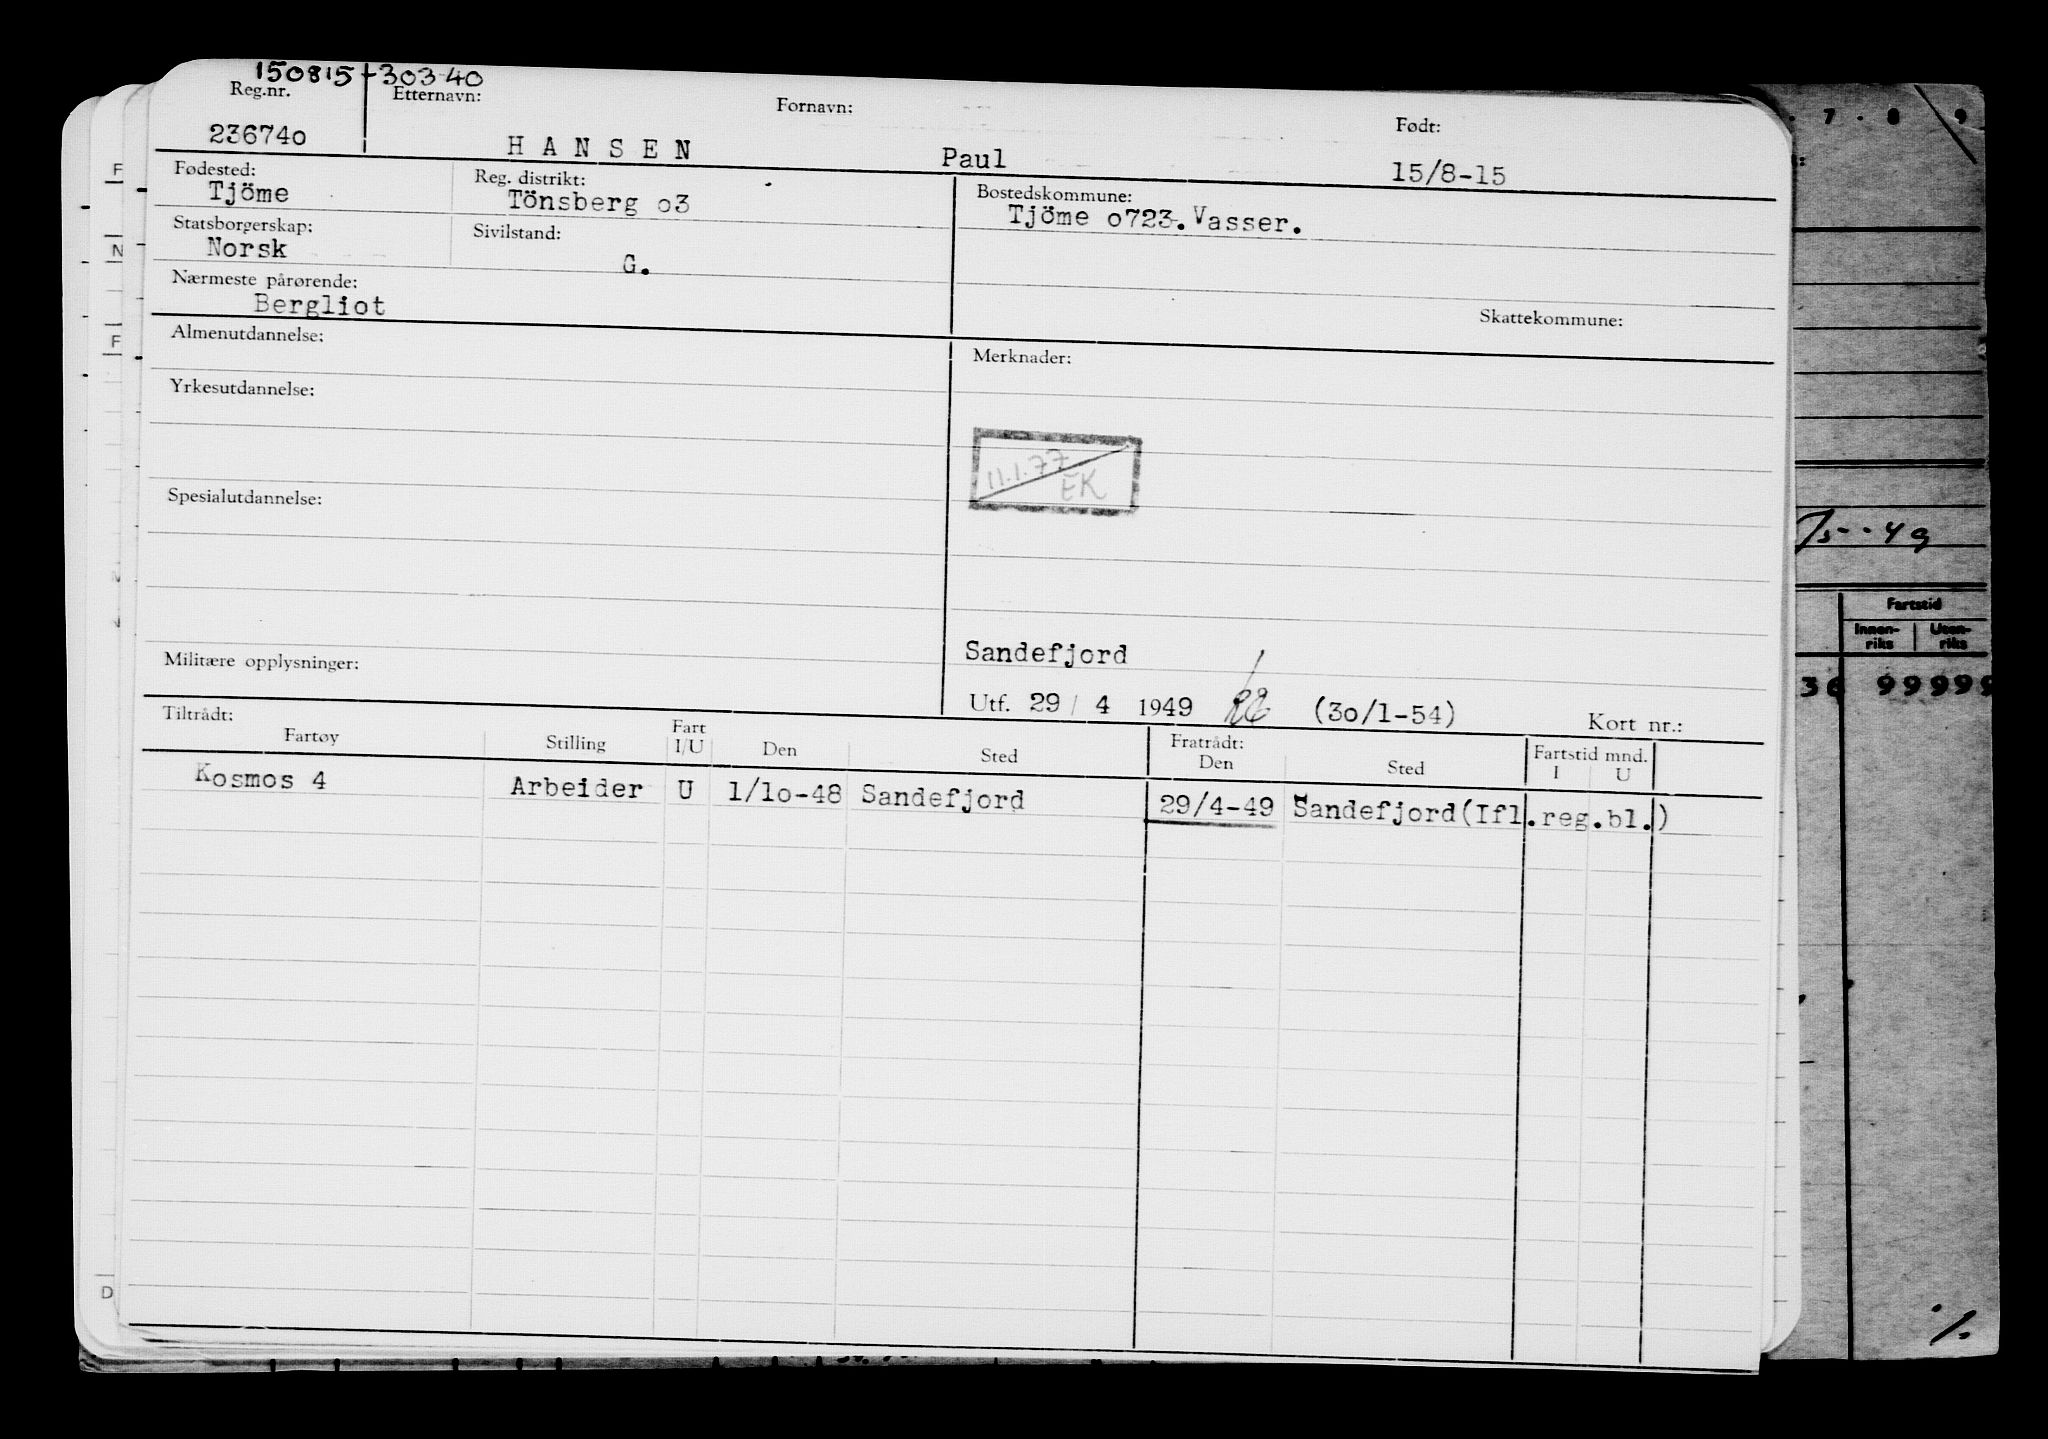 150815-30340
Reg.nr. Etternavn: Fornavn: Født:
236740 HANSEN Paul 15/8-15
Fødested: Reg. distrikt: Bostedskommune:
Tjöme Tönsberg o3 Tjöme o723. Vasser.
Statsborgerskap: Sivilstand:
Norsk G.
Nærmeste pårørende:
Bergliot Skattekommune:
Almenutdannelse: Merknader:
Yrkesutdannelse:
11.1.77
EK
Spesialutdannelse:
Sandefjord
Militære opplysninger:
Utf. 29 / 4 1949 (3o/1-54) Kort nr.:
Tiltrådt: Fratrådt: Fartstid mnd.
Fartøy Stilling Fart I/U Den Sted Den Sted I U
Kosmos 4 Arbeider U 1/1o-48 Sandefjord 29/4-49 Sandefjord(Ifl.reg.bl.)
7 . 8 9
Fartstid
Innen-riks Uten-riks
36 99999